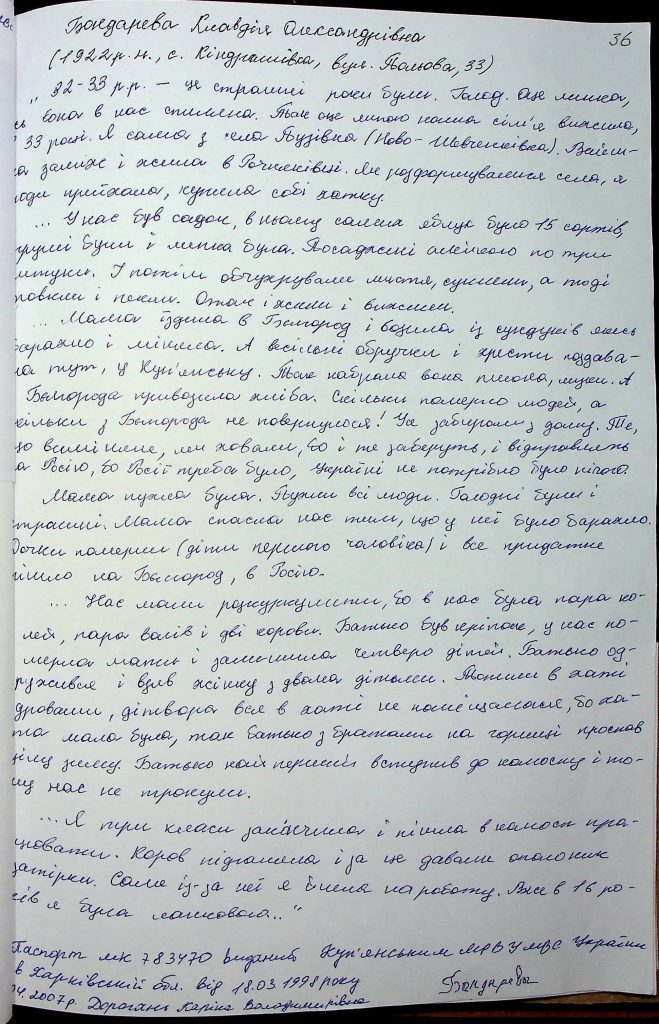 36
Бондарева Клавдія Олександрівна
(1922 р.н., с. Кіндрашівка, вул. Польова, 33)
„ 32-33 р.р. — це страшні роки були. Голод. Оце липка,
вона в нас спиляна. Так оце липою наша сім'я вижила,
33 році. Я сама з села Гузівка (Ново-Шевченківка). Вийш-
ла заміж і жила в Рочняківці. Як розформувалися села, я
сюди приїхала, купила собі хатку.
... У нас був садок, в ньому самих яблук було 15 сортів,
груші були і липка була. Посаджені алейкою по три
штуки. І потім обчухрували листя, сушили, а тоді
товкли і пекли. Отак і жили і вижили.
... Мама їздила в Бєлгород і возила із сундуків якесь
барахло і міняла. А весільні обручки і хрести поздава-
ла тут, у Куп'янську. Так набрала вона пшона, муки. А
Бєлгорода привозила хліба. Скільки померло людей, а
скільки з Бєлгорода не повернулося! Усе забирали з дому. Те,
що виміняне, ми ховали, бо і те заберуть, і відправлять
на Росію, бо Росії треба було, Україні не потрібно було нічого.
Мама пухла була. Пухли всі люди. Голодні були і
страшні. Мама спасла нас тим, що у неї було барахло.
Дочки померли (діти першого чоловіка) і все придане
пішло на Бєлгород, в Росію.
... Нас мали розкуркулити, бо в нас була пара ко-
ней, пара волів і дві корови. Батько був кріпак, у нас по-
мерла мати і залишила четверо дітей. Батько од-
ружився і взяв жінку з двома дітьми. Топили в хаті
дровами, дітвора вся в хаті не поміщалася, бо ха-
та мала була, так батько з братами на горищі проспав
цілу зиму. Батько найперший вступив до колоспу і то-
му нас не трокули.
... Я три класи закінчила і пішла в колосп пра-
цювати. Коров підганяла і за це давали ополоник
затірки. Саме із-за неї я йшла на роботу. Вже в 16 ро-
ків я була ланковою.."
Паспорт МК 783470 виданий Куп'янським МРВ УМВС України
в Харківській обл. від 18.03 1998 року
04. 2007 р. Дорогань Каріна Володимирівна
Бондарева